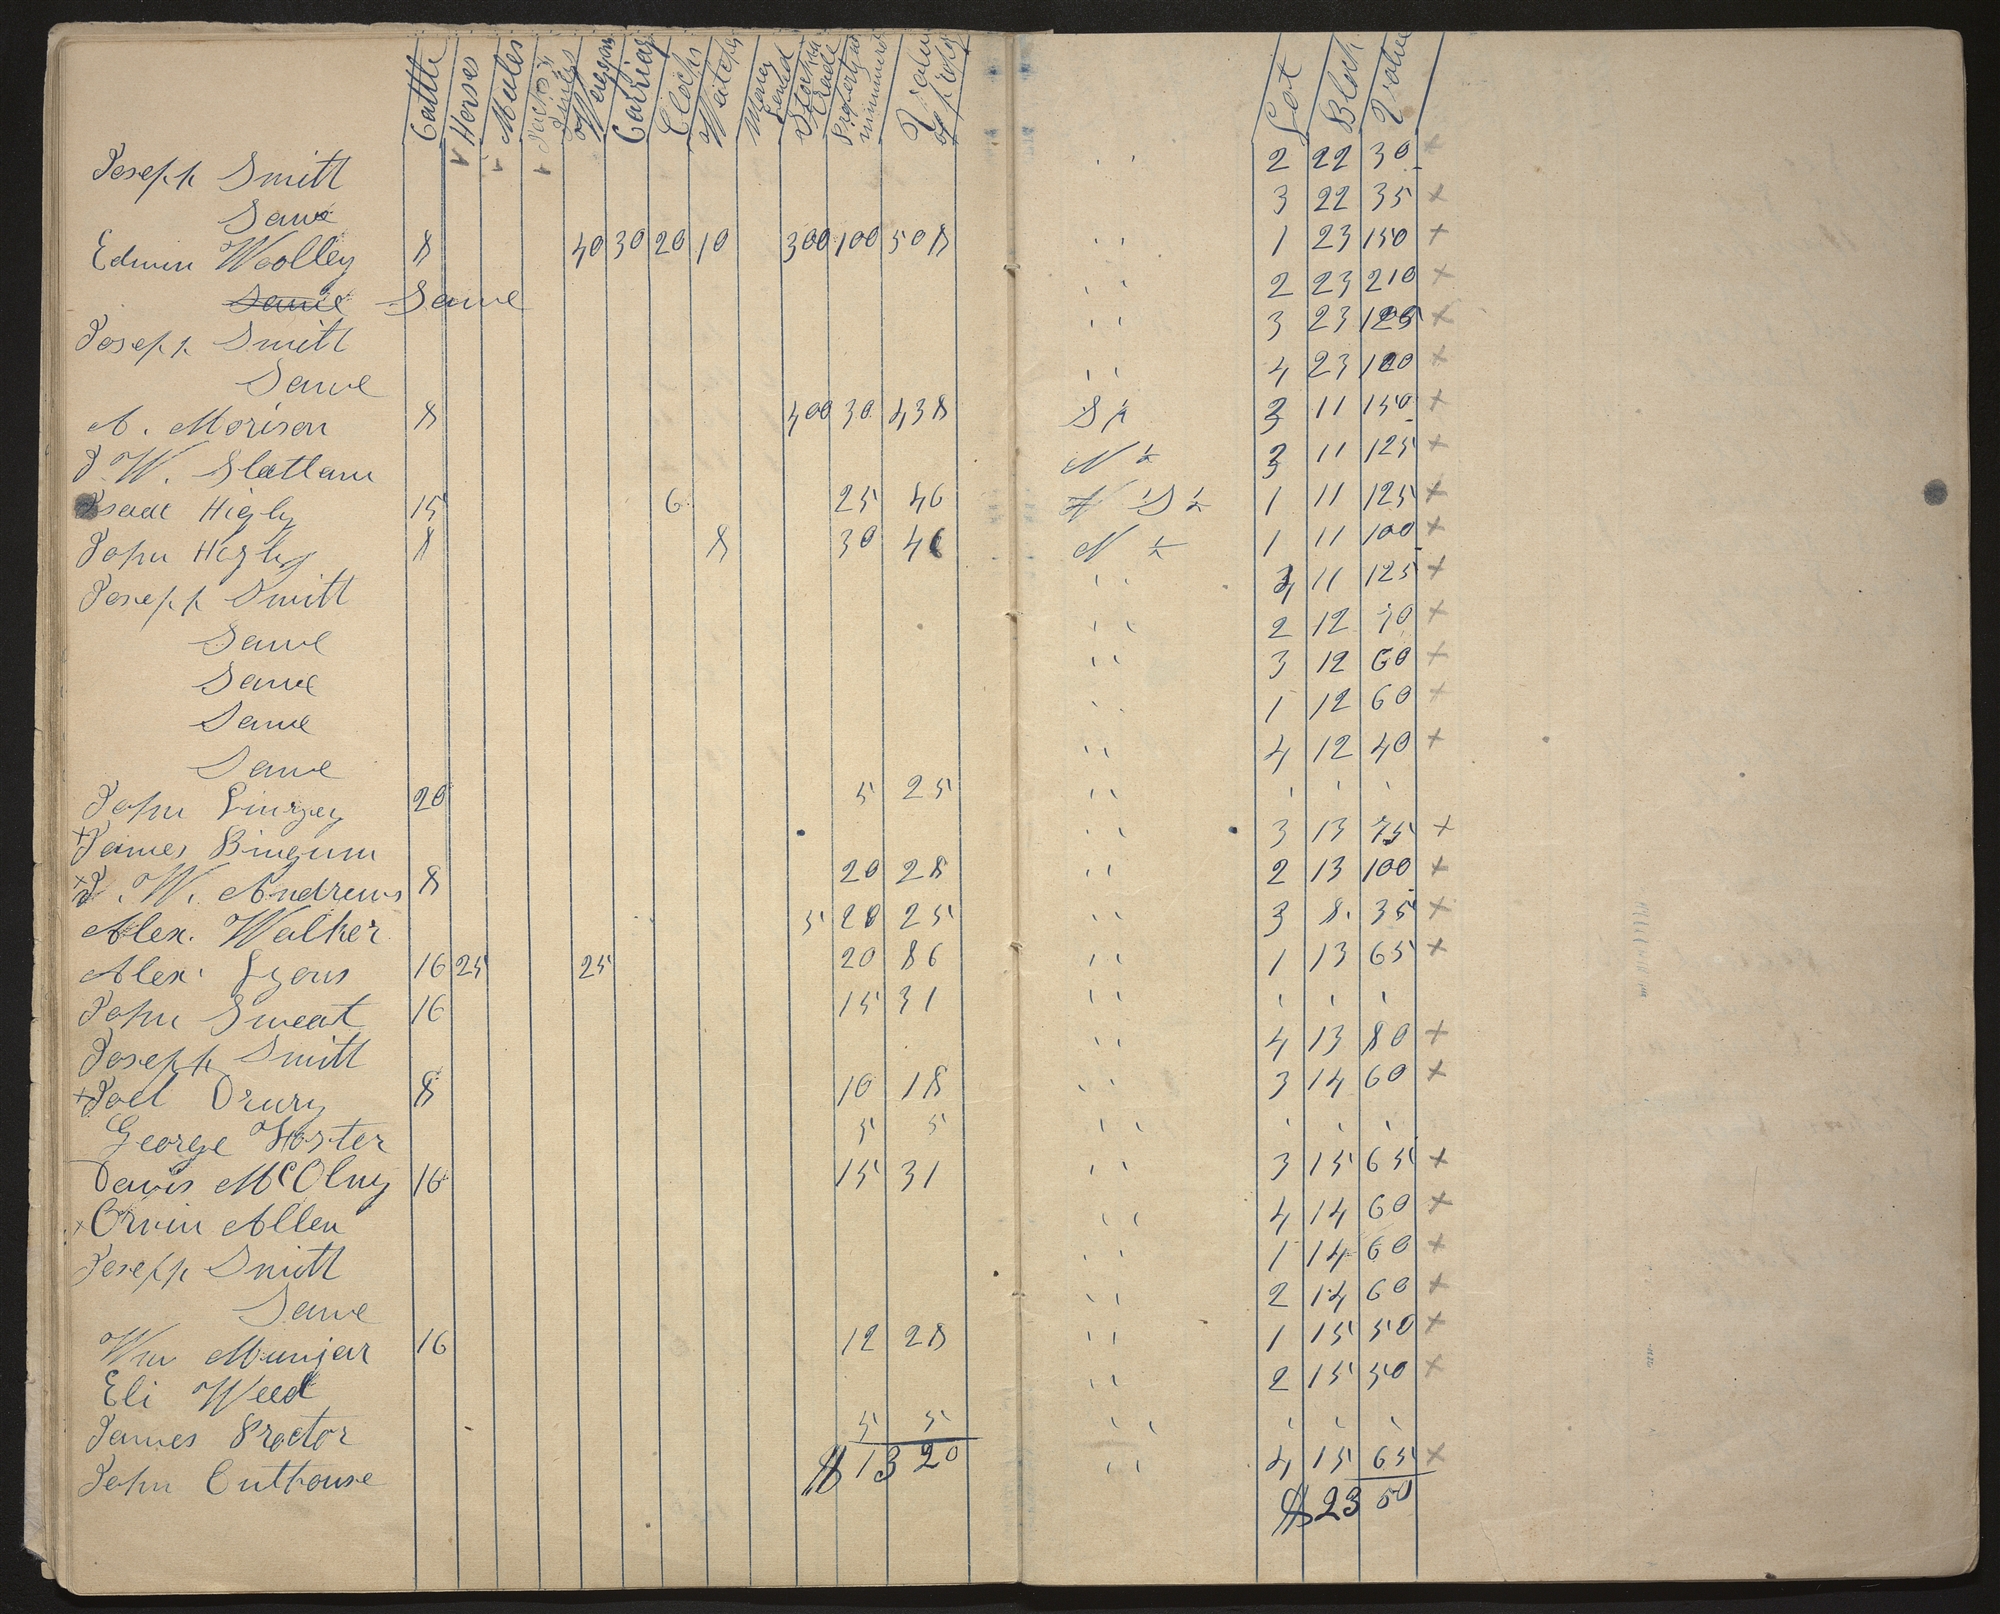 Cattle Horses Mules Jacks & Jinnies Waggons Carriag Clocks Watches Money Loaned Stock in trade Property un innumerd Value of proper Lot Block Value
Joseph Smith " " 2 22 30
Same 3 22 35 +
Edwin Woolley 8 40 30 20 10 300 100 508 " " 1 23 150 +
Same Same " " 2 23 210 +
Joseph Smith " " 3 23 125 +
Same " " 4 23 100 +
A. Morison 8 400 30 438 S ½ 3 11 150 +
J. W. Slattam N ½ 3 11 125 +
Isaac Higby 15 6 25 46 S ½ 1 11 125 +
John Higby 8 8 30 46 N ½ 1 11 100 +
Joseph Smith " " 4 11 125 +
Same " " 2 12 70 +
Same " " 3 12 60 +
Same " " 1 12 60 +
Same " " 4 12 40 +
John Linzey 20 5 25 " " " " "
+ James Bingum " " 3 13 75 +
+ J. W. Andrews 8 20 28 " " 2 13 100 +
Alex. Walker 5 20 25 " " 3 8. 35 +
Alex. Lyons 16 25 25 20 86 " " 1 13 65 +
John Sweat 16 15 31 " " " " "
Joseph Smith " " 4 13 80 +
+ Joel Drury 8 10 18 " " 3 14 60 +
George Foster 5 5 " " " " "
Davis McOlny 16 15 31 " " 3 15 65 +
+ Orvin Allen " " 4 14 60 +
Joseph Smith " " 1 14 60 +
Same " " 2 14 60 +
Wm Munjar 16 12 28 " " 1 15 50 +
Eli Weed " " 2 15 50 +
James Proctor 5 5 " " " " "
John Outhouse $1320 " " 4 15 65 +
$2350